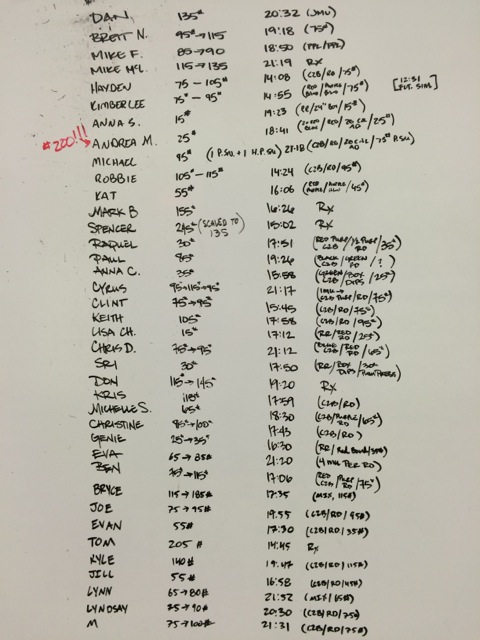 DAN 135# 20:32 (JMU)
BRETT N. 95#→115 19:18 (75#)
MIKE F. 85→90 18:50 (PPL/PPL)
MIKE ML. 115→135 21:19 RX
HAYDEN 75-105# 14:08 (C2B/RD/75#)
KIMBERLEE 75#-95# 14:55 /75#) [12:31
ANNA S. 15# 19:23 (RR/24" BOX/15#)
#200!!! → ANDREA M. 25# 18:41 /25#)
MICHAEL 95# (1 P.SU.+1 H.P.SU.) 21:18 (C2B/RD/ /75# P.SU)
ROBBIE 105#-115# 14:24 (C2B/RD/95#)
KAT 55# 16:06 /45#)
MARK B 155# 16:26 RX
SPENCER 245# (SCALED TO 135 15:02 RX
RAQUEL 30# 17:51 /35#)
PAUL 85# 19:26 (BLACK/GREEN/?)
ANNA C. 35# 15:58 (GREEN/BOX DIPS/25#)
CYRUS 95→115→95# 21:17 /RD/75#)
CLINT 75#→95# 15:45 (C2B/RD/75#)
KEITH 105# 17:58 (C2B/RD/95#)
LISA CH. 15# 17:12 (RR/RED RD/25#)
CHRIS D. 75#→95# 21:12 /65#)
SRI 30# 17:50 (RR/BOX DIPS/30# PUSH PRESS)
DON 115#→145# 19:20 RX
KRIS 118# 17:59 (C2B/RD)
MICHELLE S. 65# 18:30 (C2B/PURPLE RD/65#)
CHRISTINE 85#→100# 17:43 (C2B/RD)
GENIE 25#→35# 16:30 (RR/Red Band/35#)
EVA 65→85# 21:20 (4 MU PER RD)
BEN 75#→115# 17:06 /75#)
BRYCE 115→185# 17:35 (MIX, 115#)
JOE 75→95# 19:55 (C2B/RD/95#)
EVAN 55# 17:30 (C2B/RD/35#)
TOM 205# 14:45 RX
KYLE 140# 19:47 (C2B/RD/115#)
JILL 55# 16:58 (C2B/RD/45#)
LYNN 65→80# 21:52 (MIX/65#)
LYNDSAY 75→90# 20:30 (C2B/RD/75#)
M 75→100# 21:31 (C2B/RD/75#)